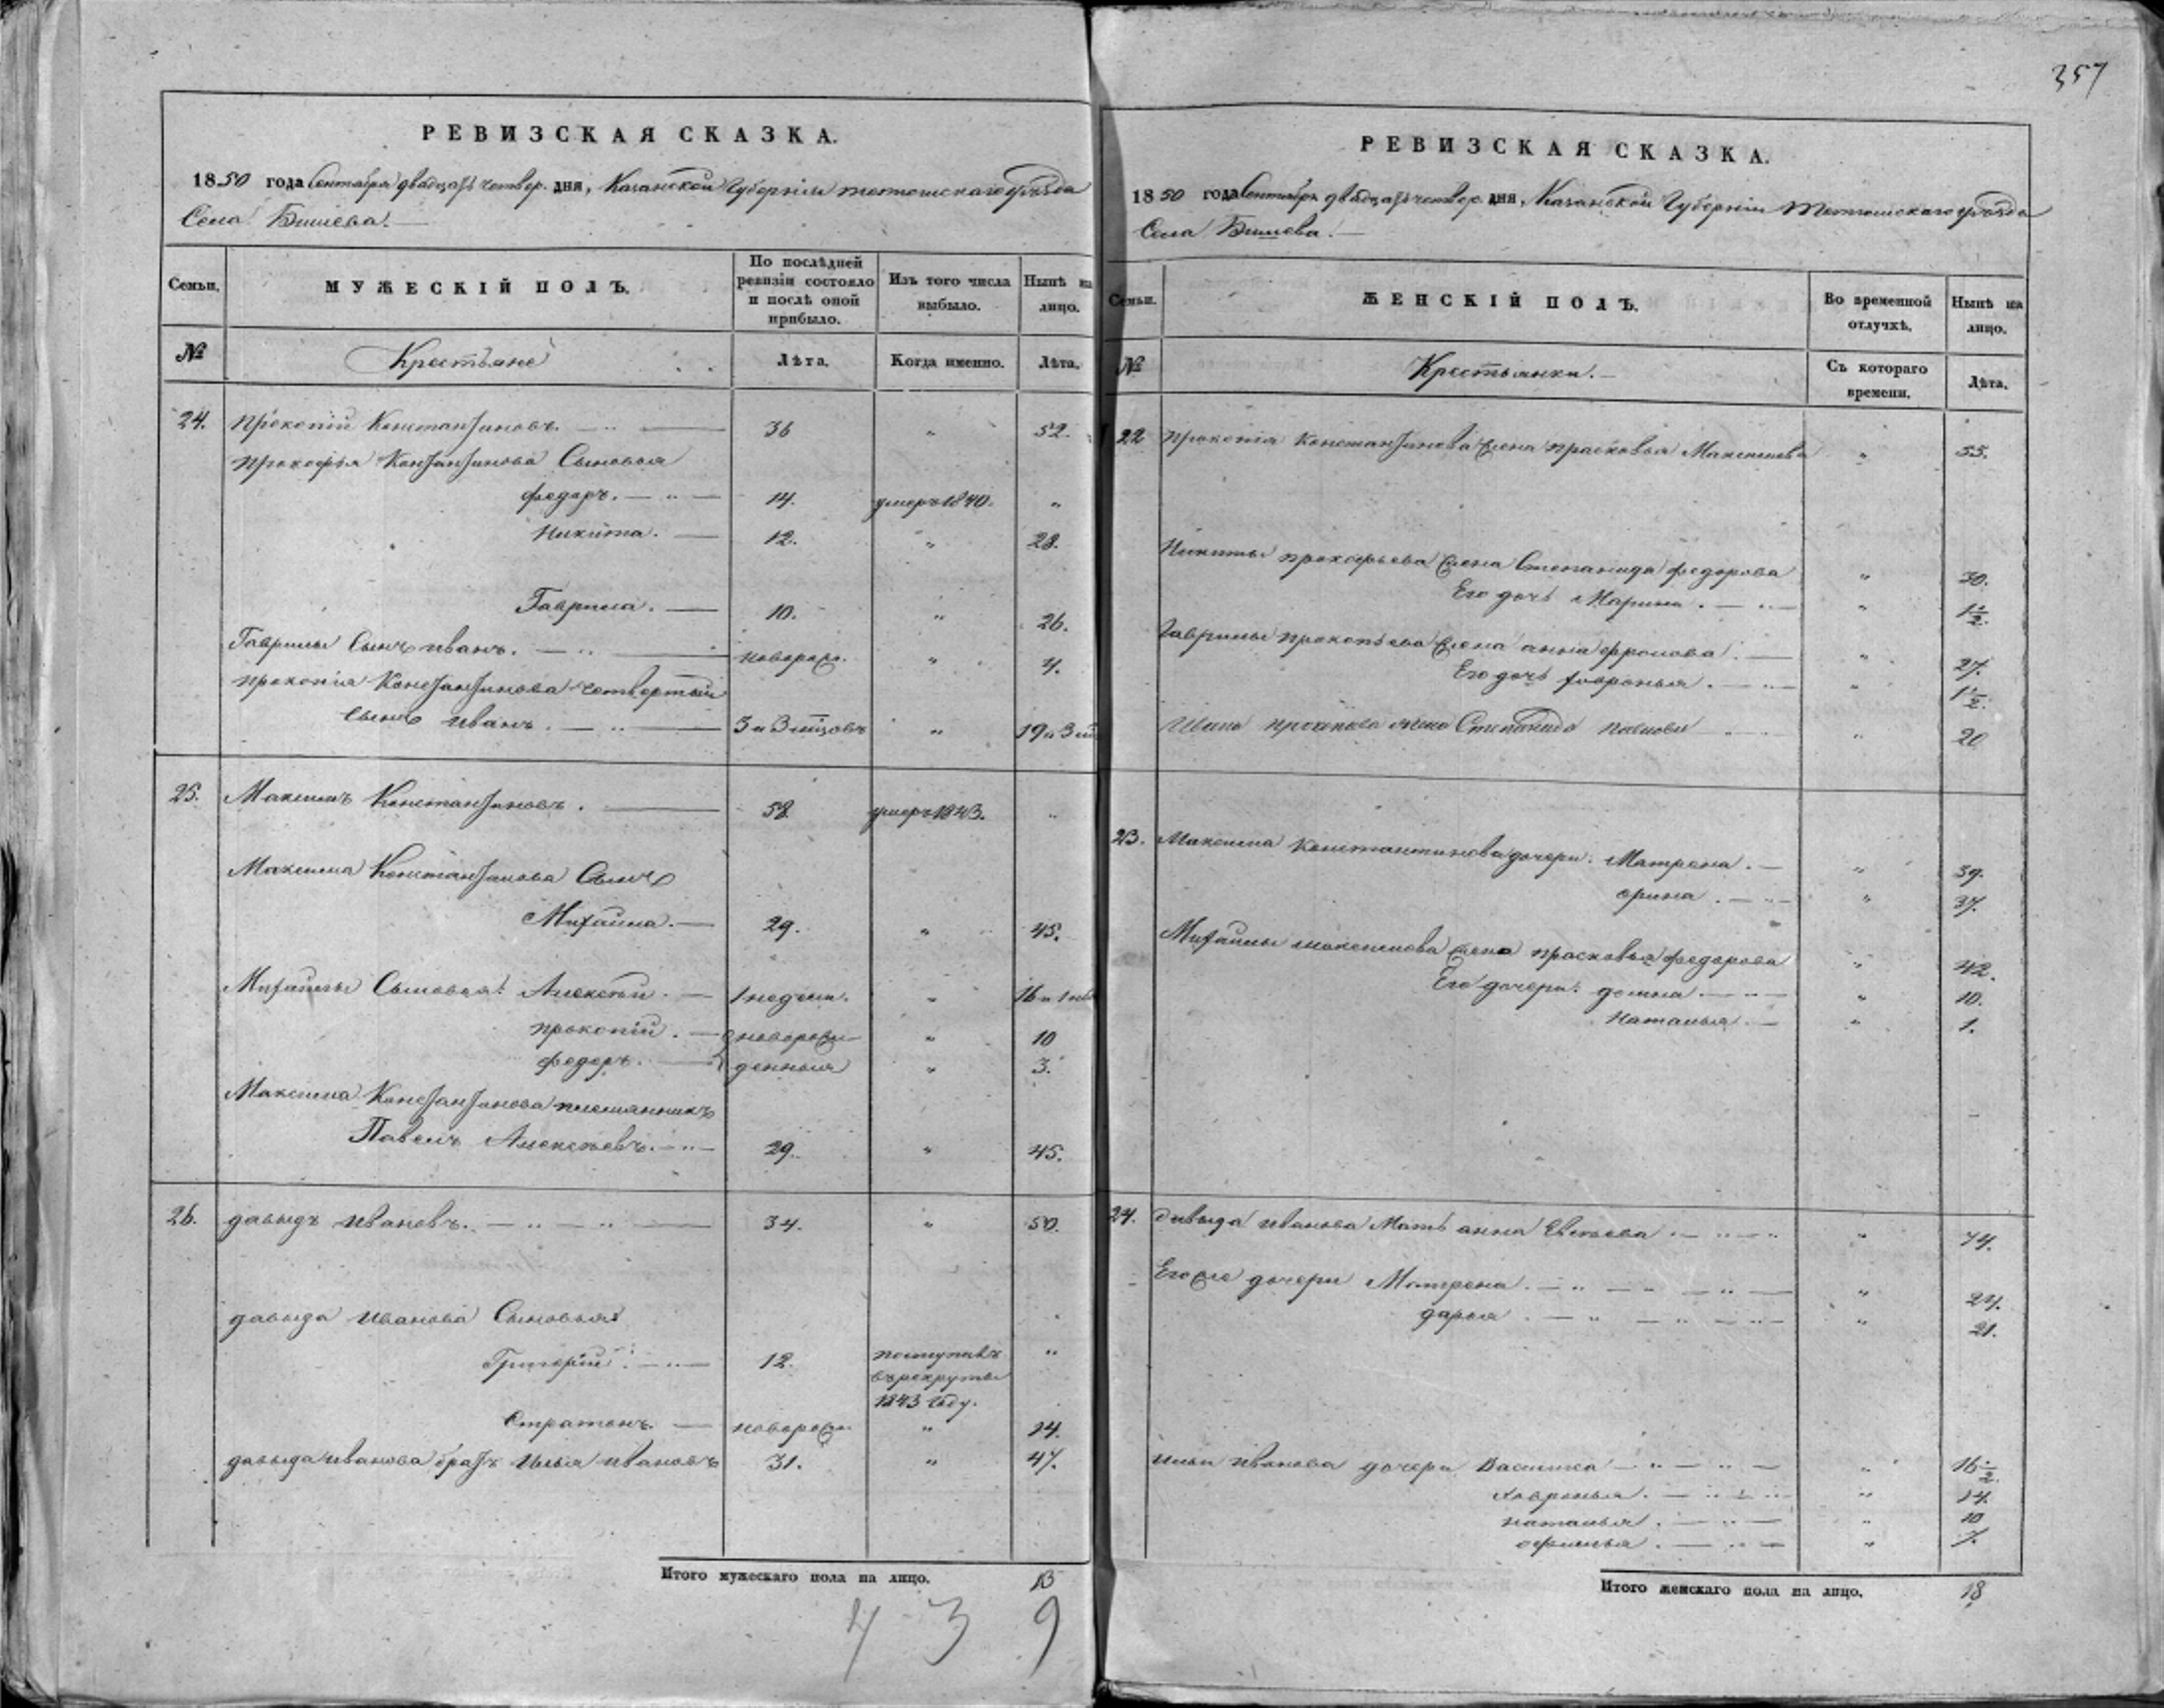 357
РЕВИЗСКАЯ СКАЗКА.
1850 года Сентября двадцать четвер. дня, Казанской Губернiи тетюшскаго уѣзда
Села Бишева.
Семьи.
МУЖЕСКIЙ ПОЛЪ.
По послѣдней ревизiи состояло и послѣ оной прибыло.
Изъ того числа выбыло.
Нынѣ на лицо.
№
Крестьяне
Лѣта.
Когда именно.
Лѣта.
24. Прокопiй Константиновъ. 36 " 52.
Прокофья Константинова Сыновья
федоръ. 14. умеръ 1840. "
Никита. 12. " 28.
Гаврила. 10. " 26.
Гаврилы Сынъ иванъ. новорож. " 4.
прокопiя Константинова четвертый
сынъ иванъ. 3 и 3 мѣсцовъ " 19 и 3 мѣ
25. Максимъ Константиновъ. 58. умеръ 1843. "
Максима Константинова Сынъ
Михайла. 29. " 45.
Михайлы Сыновья: Алексѣй. 1 недели. " 16 и 1 не
прокопiй. новорож " 10
федоръ. денныя " 3.
Максима Константинова племянникъ
Павелъ Алексѣевъ. 29. " 45.
26. давыдъ ивановъ. 34. " 50.
давыда иванова Сыновья:
Григорiй. 12. поступилъ "
въ рекруты
1843 году.
Стратонъ. новорож. " 14.
давыда иванова братъ илья ивановъ 31. " 47.
Итого мужескаго пола на лицо. 13
4 3 9
РЕВИЗСКАЯ СКАЗКА.
1850 года Сентябрь двадцать четвер. дня, Казанской Губернiи Тетюшскаго уѣзда
Села Бишева.
Семьи.
ЖЕНСКIЙ ПОЛЪ.
Во временной отлучкѣ.
Нынѣ на лицо.
№
Крестьянки.
Съ котораго времени.
Лѣта.
22 прокопiя константинова жена прасковья Максимова " 55.
Никиты прокофьева жена Степанида федорова " 30.
Его дочь Марина. " 1 1/2.
Гаврилы прокопьева жена анна фролова. " 27.
Его дочь Хавронья. " 1 1/2.
Ивана прокопьева жена Степанида павлова " 20
23. Максима константинова дочери: Матрена. " 39.
орина. " 37.
Михайлы максимова жена прасковья федорова " 42.
Его дочери: домна. " 10.
Наталья. " 1.
24. давыда иванова Мать анна Евсѣева " 74.
Егоже дочери Матрена. " 24.
дарья. " 21.
ильи иванова дочери Василиса " 16 1/2.
Хавронья. " 14.
наталья. " 10
офимья. " 7.
Итого женскаго пола на лицо. 18